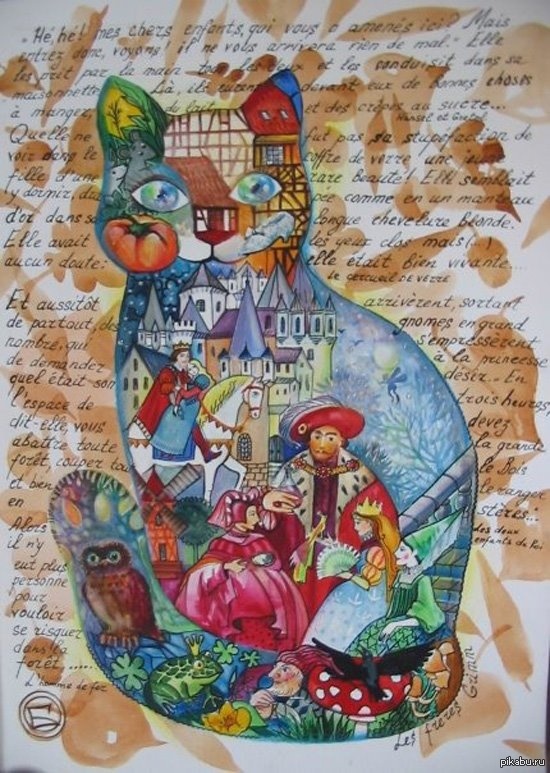 „Hé, hé! mes chers enfants, qui vous a amenés ici? Mais
entrez donc, voyons! il ne vous arrivera rien de mal." Elle
les prit par la main tous les deux et les conduisit dans sa
maisonnette. Là, ils eurent devant eux de bonnes choses
à manger, du lait et des crêpes au sucre...
Hansel et Gretel
Quelle ne fut pas sa stupéfaction de
voir dans le coffre de verre une jeune
fille d'une rare beauté! Elle semblait
y dormir, comme en un manteau
d'or dans sa longue chevelure blonde.
Elle avait les yeux clos mais (...)
aucun doute: elle était bien vivante...
Le cercueil de verre
Et aussitôt arrivèrent, sortant
de partout, des gnomes en grand
nombre, qui s'empressèrent
de demander à la princesse
quel était son désir. - En
l'espace de trois heures,
dit-elle, vous devez
abattre toute la grande
forêt, couper tout le Bois
et le ranger
en stères...
Les deux
enfants du Roi
Alors
il n'y
eut plus
personne
pour
vouloir
se risquer
dans la
forêt,.....
L'homme de fer
Les frères Grimm
pikabu.ru